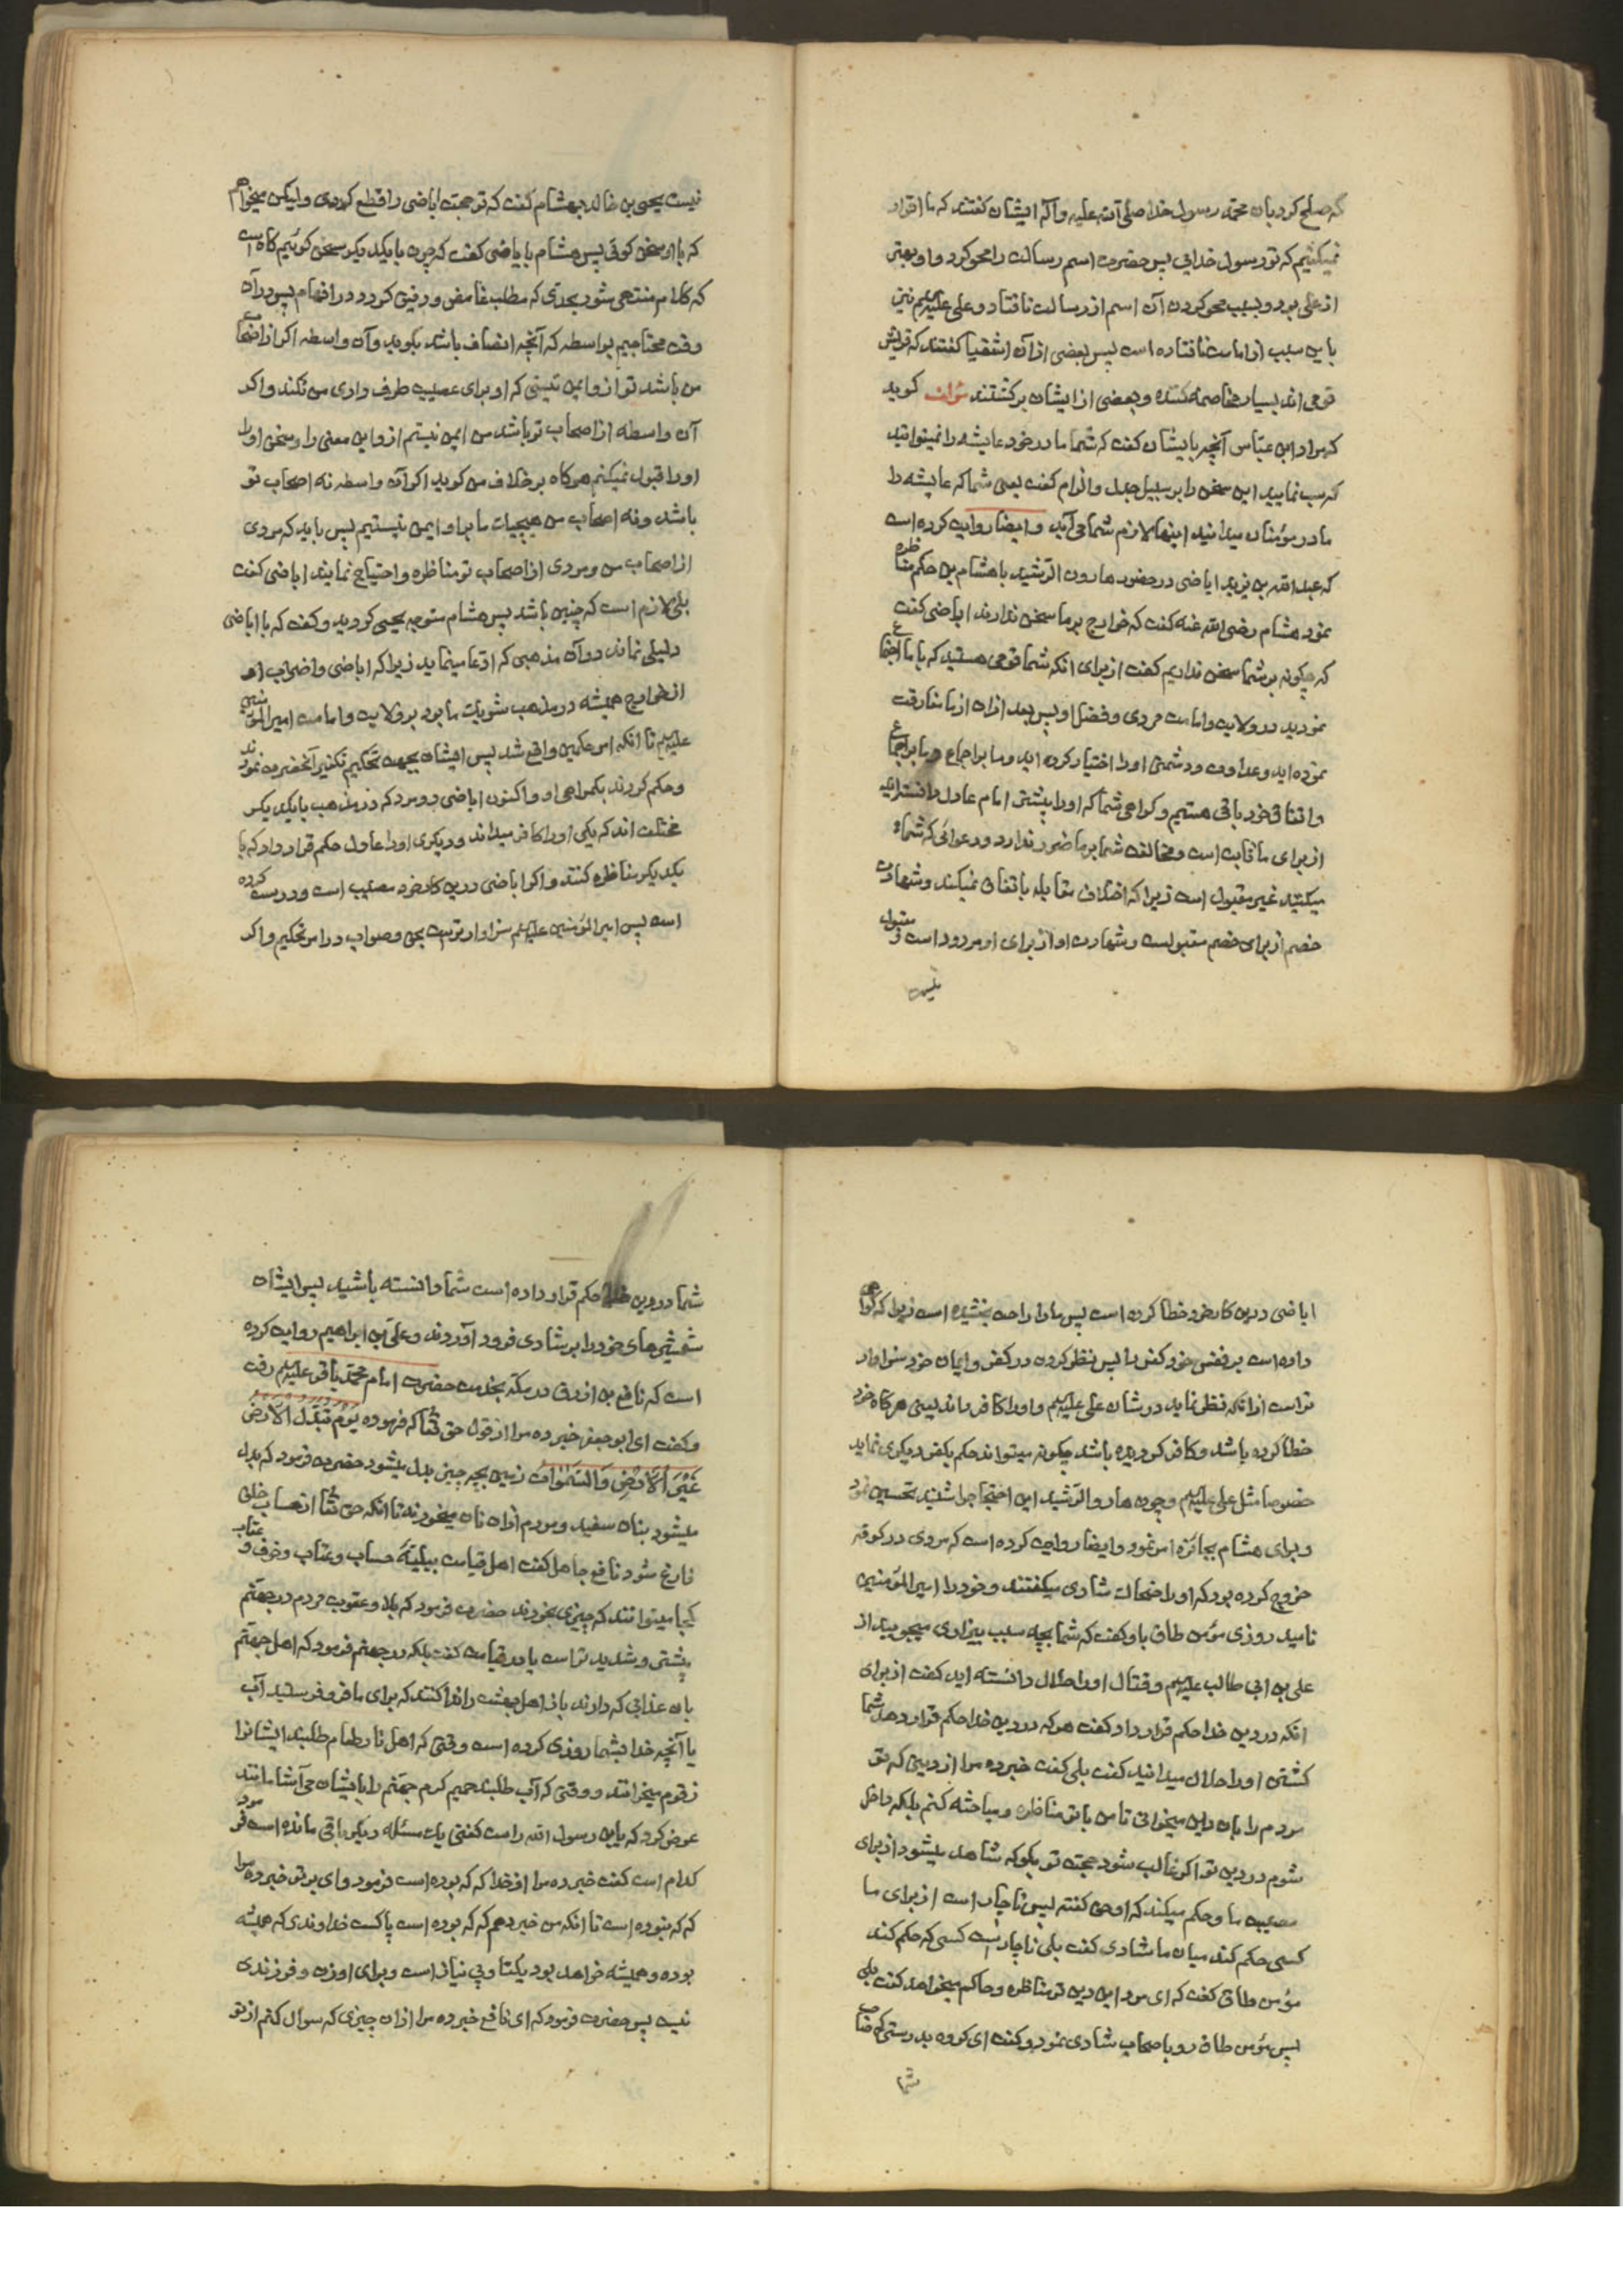 که صلح کرد بان محمد رسول خدا صلی الله علیه وآله ایشان کفتند که ما اقرار
نمیکنیم که تو رسول خدایی پس حضرت اسم رسالت را محو کرد و او بهتر
از علی بود و بسبب محو کردن آن اسم از رسالت نافتاد و علی علیهلم نیز
باین سبب از امامت نافتاده است پس بعضی از آن اشقیا کفتند که قریش
قومی اند بسیار مخاصمه کننده و بعضی از ایشان برکشتند مؤلف کوید
که مراد ابن عباس آنچه بایشان کفت که شما مادر خود عایشه را نمیتوانید
که سب نمایید این سخن را بر سبیل جدل و الزام کفت یعنی شما که عایشه را
مادر مؤمنان میدانید اینها لازم شما می آید و ایضا روایت کرده است
که عبدالله بن یزید اباضی در حضور هارون الرشید با هشام بن حکم مناظره
نمود هشام رضی الله عنه کفت که خوارج بر ما سخن ندارند اباضی کفت
که چکونه بر شما سخن نداریم کفت از برای انکه شما قومی هستید که با ما اجتماع
نمودید در ولایت و امامت مردی و فضل او پس بعد ازان از ما مفارقت
نموده اید و عداوت و دشمنی او را اختیار کرده اید و ما بر اجماع و ما بر اجماع
و اتفاق خود باقی هستیم و کواهی شما که او را پیشتر امام عادل دانسته اید
از برای ما ثابت است و مخالفت شما بر ما ضرر ندارد و دعوائی که شما
میکنید غیر مقبول است زیرا که اختلاف مقابله باتفاق نمیکند و شهادت
خصم از برای خصم مقبولست و شهادت او از برای او مردود است و مقبول
نیست
نیست یحیی بن خالد بهشام کفت که تو حجت اباضی را قطع کردی ولیکن میخواهم
که با او سخن کوئی پس هشام با اباضی کفت که چون با یکدیکر سخن کوئیم کاه است
که کلام منتهی شود بحدی که مطلب غامض و دقیق کردد در افهام پس در آن
وقت محتاجیم بواسطه که آنچه انصاف باشد بکوید و آن واسطه اکر از اصحاب
من باشد تو از و ایمن نیستی که او برای عصبیت طرف داری من نکند و اکر
آن واسطه از اصحاب تو باشد من ایمن نیستم از و این معنی را و سخن او را
او را قبول نمیکنم هرکاه بر خلاف من کوید اکر آن واسطه نه اصحاب تو
باشد و نه اصحاب من هیچیک ما برا و ایمن نیستیم پس باید که مردی
از اصحاب من و مردی از اصحاب تو مناظره و احتیاج نمایند اباضی کفت
بلی لازم است که چنین باشد پس هشام متوجه یحیی کردید و کفت که با اباضی
دلیلی نماند در آن مذهبی که ادعا مینماید زیرا که اباضی و اصحاب او
از خوارج همیشه در مذهب شریک ما بود بر ولایت و امامت امیر المؤمنین
علیهلم تا انکه امر حکمین واقع شد پس ایشان بجهت تحکیم تکفیر آنحضرت نمودند
و حکم کردند بکمراهی او و اکنون اباضی دو مرد که در مذهب با یکدیکر
مختلف اند که یکی او را کافر میداند و دیکری او را عادل حکم قرار داد که با
یکدیکر مناظره کنند و اکر اباضی درین کار خود مصیب است و درست کرده
است پس امیر المؤمنین علیهلم سزاوارتر است بحق و صواب در امر تحکیم و اکر
اباضی درین کار خود خطا کرده است پس ما را راحت بخشیده است زیرا که کواهی
داده است بر نفس خود کفر را پس نظر کردن در کفر و ایمان خود سزاوار
تر است از انکه نظر نماید در شان علی علیهلم و او را کافر داند یعنی هرکاه خود
خطا کرده باشد و کافر کردیده باشد چکونه میتواند حکم بکفر دیکری نماید
خصوصا مثل علی علیهلم و چون هارو الرشید این احتجاجرا شنید تحسین نمود
و برای هشام بجائزه امر نمود و ایضا روایت کرده است که مردی در کوفه
خروج کرده بود که او را ضحاک شاری میکفتند و خود را امیر المؤمنین
نامید روزی مؤمن طاق باو کفت که شما بچه سبب بیزاری میجویید از
علی بن ابی طالب علیهلم و قتال او را حلال دانسته اید کفت از برای
انکه در دین خدا حکم قرار داد کفت هرکه در دین خدا حکم قرار دهد شما
کشتن او را حلال میدانید کفت بلی کفت خبر ده مرا از دینی که تو
مردم را بان دین میخوانی تا من با تو مناظره و مباحثه کنم بلکه داخل
شوم در دین تو اکر غالب شود حجت تو بکو که شاهد میشود از برای
مصیب ما و حکم میکند که او حق کفته پس ناچار است از برای ما
کسی حکم کند میان ما شاری کفت بلی ناچار است کسی که حکم کند
مؤمن طاق کفت که ای مرد این دین تو مناظره و حاکم میخواهد کفت بلی
پس مؤمن طاق رو باصحاب شاری نمود و کفت ای کروه بدرستی که صاحب
شما
شما در دین خدا حکم قرار داده است شما دانسته باشید پس ایشان
شمشیرهای خود را بر شاری فرود آوردند و علی بن ابراهیم روایت کرده
است که نافع بن ازرق در مکه بخدمت حضرت امام محمد باقر علیهلم رفت
و کفت ای ابو جعفر خبر ده مرا از قول حق تعا که فرموده یَوْمَ تُبَدَّلُ الْاَرْضُ
غَیْرَ الْاَرْضِ وَالسَّمٰوَاتُ زمین بچه چیز بدل میشود حضرت فرمود که بدل
میشود بنان سفید و مردم ازان نان میخورند تا انکه حق تعا از حساب خلق
فارغ شود نافع جاهل کفت اهل قیامت ببلیه حساب و عتاب و خوف و عتاب
کجا میتوانند که چیزی بخورند حضرت فرمود که بلا و عقوبت مردم در جهنم
بیشتر و شدیدتر است یا در قیامت کفت بلکه در جهنم فرمود که اهل جهنم
بان عذابی که دارند باز اهل بهشت را ندا کنند که برای ما فرو فرستید آب
یا آنچه خدا بشما روزی کرده است و وقتی که اهل نار طعام طلبند ایشانرا
زقوم میخورانند و وقتی که آب طلبند حمیم کرم جهنم را بایشان می آشامانند
عرض کرد که یابن رسول الله راست کفتی یک مسئله دیکر باقی مانده است فرمود
کدام است کفت خبر ده مرا از خدا که که بوده است فرمود وای بر تو خبر ده مرا
که که نبوده است تا انکه من خبر دهم که که بوده است پاکست خداوندی که همیشه
بوده و همیشه خواهد بود یکتا و بی نیاز است و برای او زن و فرزندی
نیست پس حضرت فرمود که ای نافع خبر ده مرا از ان چیزی که سوال کنم از تو